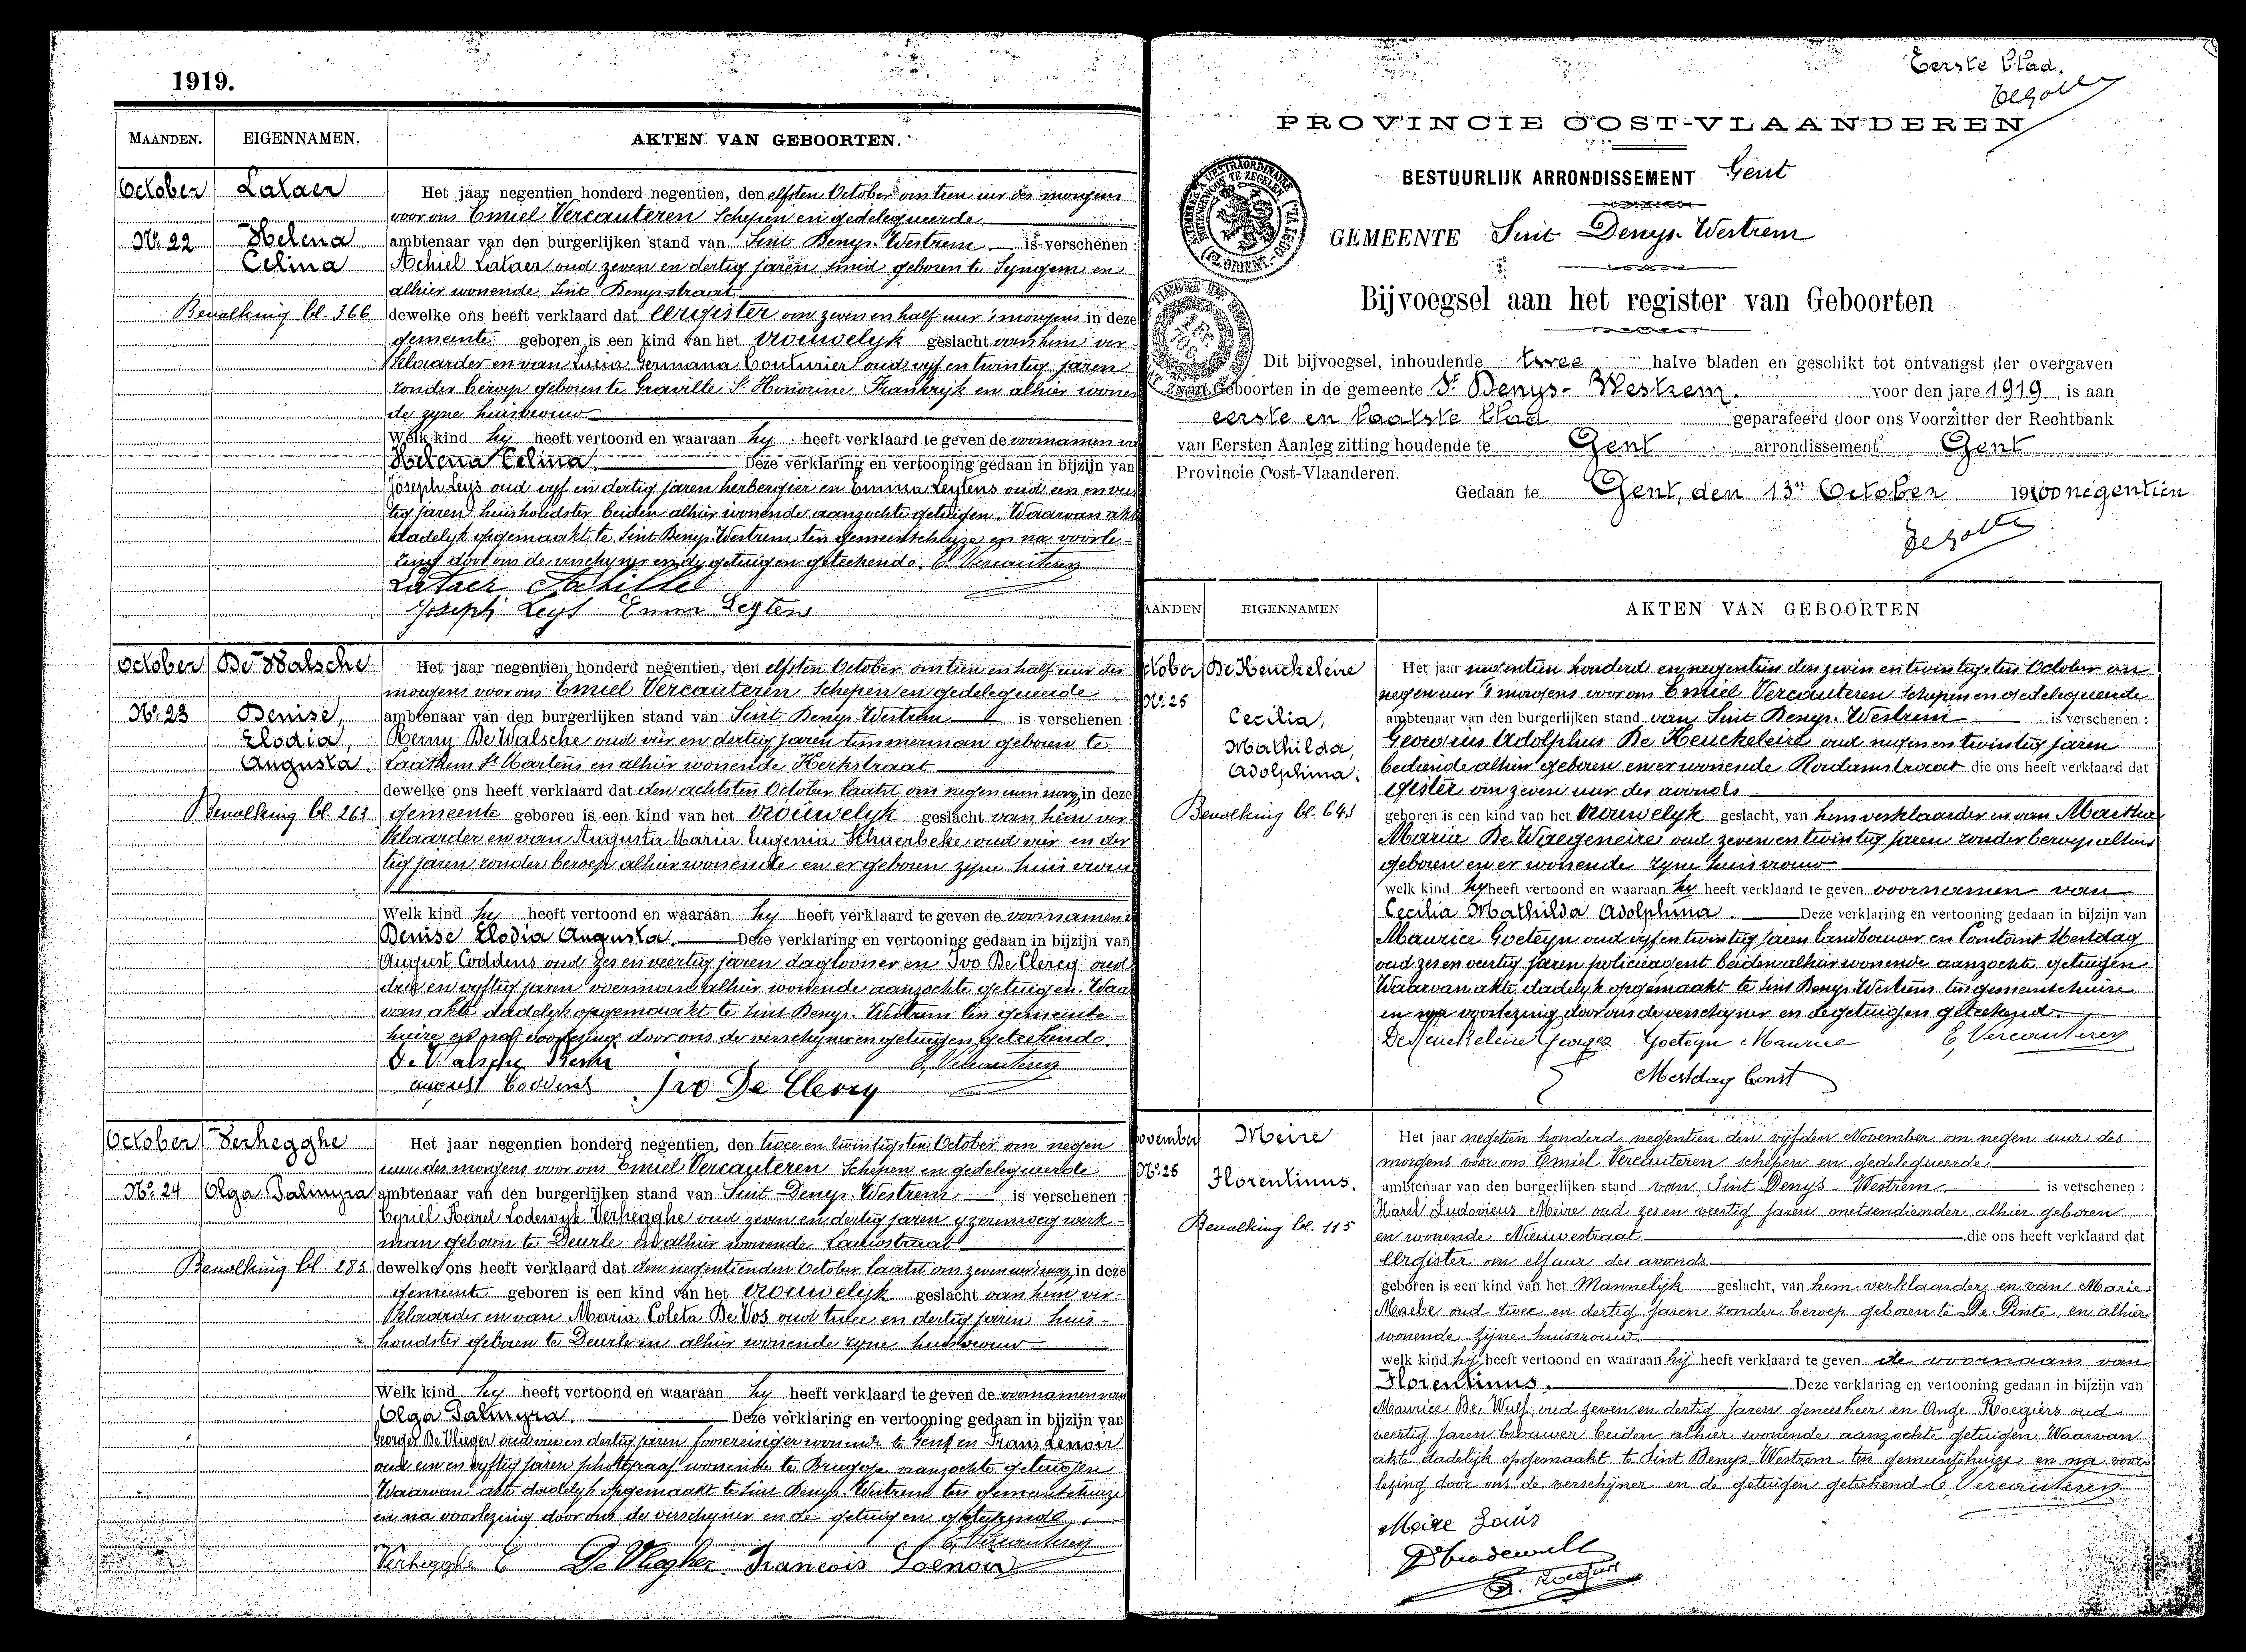 1919.
MAANDEN. EIGENNAMEN. AKTEN VAN GEBOORTEN.
October Lataer
No. 22 Helena
Celina
Bevolking bl. 366
Het jaar negentien honderd negentien, den elfsten October om tien uur des morgens
voor ons Emiel Vercauteren Schepen en gedelegueerde
ambtenaar van den burgerlijken stand van Sint Denys-Westrem is verschenen :
Achiel Lataer oud zeven en dertig jaren smid geboren te Syngem en
alhier wonende Sint Denysstraat
dewelke ons heeft verklaard dat eergister om zeven en half uur 's morgens in deze
gemeente geboren is een kind van het vrouwelyk geslacht van hem ver-
klaarder en van Lucia Germana Couturier oud vyf en twintig jaren
zonder beroep geboren te Graville St Honorine Frankryk en alhier wonen
de zyne huisvrouw
Welk kind hy heeft vertoond en waaraan hy heeft verklaard te geven de voornamen van
Helena Celina. Deze verklaring en vertooning gedaan in bijzijn van
Joseph Leys oud vyf en dertig jaren herbergier en Emma Leytens oud een en veer
tig jaren huishoudster beiden alhier wonende aanzochte getuigen. Waarvan akte
dadelyk opgemaakt te Sint Denys-Westrem ten gemeentehuize en na voorle-
zing door ons de verschyner en de getuigen geteekend. E. Vercauteren
Lataer Achille
Joseph Leys Emma Leytens
October De Walsche
No. 23 Denise,
Elodia,
Augusta.
Bevolking bl. 263
Het jaar negentien honderd negentien, den elfsten October om tien en half uur des
morgens voor ons Emiel Vercauteren Schepen en gedelegueerde
ambtenaar van den burgerlijken stand van Sint Denys-Westrem is verschenen :
Remy De Walsche oud vier en dertig jaren timmerman geboren te
Laathem St Martens en alhier wonende Kerkstraat
dewelke ons heeft verklaard dat den achtsten October laatst om negen uur 's morg. in deze
gemeente geboren is een kind van het vrouwelyk geslacht van hem ver-
klaarder en van Augusta Maria Eugenia Schuerbeke oud vier en der
tig jaren zonder beroep alhier wonende en er geboren zyne huisvrouw
Welk kind hy heeft vertoond en waaraan hy heeft verklaard te geven de voornamen
Denise Elodia Augusta. Deze verklaring en vertooning gedaan in bijzijn van
August Coddens oud zes en veertig jaren daglooner en Ivo De Clercq oud
drie en vyftig jaren voerman alhier wonende aanzochte getuigen. Waar
van akte dadelyk opgemaakt te Sint Denys-Westrem ten gemeente-
huize en na voorlezing door ons de verschyner en getuigen geteekend.
De Walsche Remi E. Vercauteren
august Coddens Ivo De Clercq
October Verhegghe
No. 24 Olga Palmyra
Bevolking bl. 285
Het jaar negentien honderd negentien, den twee en twintigsten October om negen
uur des morgens voor ons Emiel Vercauteren Schepen en gedelegueerde
ambtenaar van den burgerlijken stand van Sint Denys-Westrem is verschenen :
Cyriel Karel Lodewyk Verhegghe oud zeven en dertig jaren yzerenweg werk-
man geboren te Deurle en alhier wonende
dewelke ons heeft verklaard dat den negentienden October laatst om zeven uur 's morg. in deze
gemeente geboren is een kind van het vrouwelyk geslacht van hem ver-
klaarder en van Maria Coleta De Vos oud twee en dertig jaren huis-
houdster geboren te Deurle en alhier wonende zyne huisvrouw
Welk kind hy heeft vertoond en waaraan hy heeft verklaard te geven de voornamen van
Olga Palmyra. Deze verklaring en vertooning gedaan in bijzijn van
Georges De Vlieger oud vier en dertig jaren wonende te Gent en Frans Lenoir
oud een en vyftig jaren photograaf wonende te Brugge aanzochte getuigen
Waarvan akte dadelyk opgemaakt te Sint Denys-Westrem ten gemeentehuize
en na voorlezing door ons de verschyner en de getuigen geteekend.
E. Vercauteren
Verhegghe C De Vliegher Francois Loenoir
Eerste blad.
PROVINCIE OOST-VLAANDEREN
BESTUURLIJK ARRONDISSEMENT Gent
GEMEENTE Sint Denys-Westrem
Bijvoegsel aan het register van Geboorten
Dit bijvoegsel, inhoudende twee halve bladen en geschikt tot ontvangst der overgaven
van Geboorten in de gemeente St Denys-Westrem. voor den jare 1919 is aan
eerste en laatste blad geparafeerd door ons Voorzitter der Rechtbank
van Eersten Aanleg zitting houdende te Gent arrondissement Gent
Provincie Oost-Vlaanderen.
Gedaan te Gent, den 13n October 19100 negentien
MAANDEN EIGENNAMEN AKTEN VAN GEBOORTEN
October De Heuckeleire
No. 25
Cecilia,
Mathilda,
Adolphina.
Bevolking bl. 643
Het jaar negentien honderd en negentien den zeven en twintigsten October om
negen uur 's morgens voor ons Emiel Vercauteren Schepen en gedelegueerde
ambtenaar van den burgerlijken stand van Sint Denys-Westrem is verschenen :
Georgius Adolphus De Heuckeleire oud negen en twintig jaren
bediende alhier geboren en er wonende die ons heeft verklaard dat
gister om zeven uur des avonds
geboren is een kind van het vrouwelyk geslacht, van hem verklaarder en van Martha
Maria De Waegeneire oud zeven en twintig jaren zonder beroep alhier
geboren en er wonende zyne huisvrouw
welk kind hy heeft vertoond en waaraan hy heeft verklaard te geven voornamen van
Cecilia Mathilda Adolphina. Deze verklaring en vertooning gedaan in bijzijn van
Maurice Goeteyn oud vyf en twintig jaren landbouwer en Constant Mestdag
oud zes en veertig jaren policieagent beiden alhier wonende aanzochte getuigen
Waarvan akte dadelyk opgemaakt te Sint Denys-Westrem ten gemeentehuize
en na voorlezing door ons de verschyner en de getuigen geteekend.
De Heuckeleire Georges Goeteyn Maurice E. Vercauteren
Mestdag Const
November Meire
No. 26
Florentinus.
Bevolking bl. 115
Het jaar negetien honderd negentien den vijfden November om negen uur des
morgens voor ons Emiel Vercauteren schepen en gedelegueerde
ambtenaar van den burgerlijken stand van Sint Denys-Westrem is verschenen :
Karel Ludovicus Meire oud zes en veertig jaren metsendiender alhier geboren
en wonende Nieuwestraat die ons heeft verklaard dat
eergister om elf uur des avonds
geboren is een kind van het Mannelijk geslacht, van hem verklaarder en van Marie
Maebe oud twee en dertig jaren zonder beroep geboren te De Pinte en alhier
wonende zijne huisvrouw
welk kind hij heeft vertoond en waaraan hij heeft verklaard te geven de voornaam van
Florentinus. Deze verklaring en vertooning gedaan in bijzijn van
Maurice De Wulf oud zeven en dertig jaren geneesheer en Ange Roegiers oud
veertig jaren brouwer beiden alhier wonende aanzochte getuigen. Waarvan
akte dadelijk opgemaakt te Sint Denys-Westrem ten gemeentehuize en na voor-
lezing door ons de verschijner en de getuigen geteekend E. Vercauteren
Meire Louis